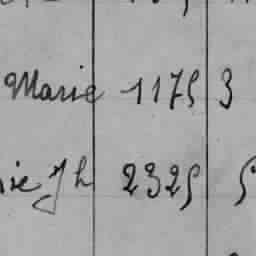 Marie 1175 3
rie Jh 2325 5